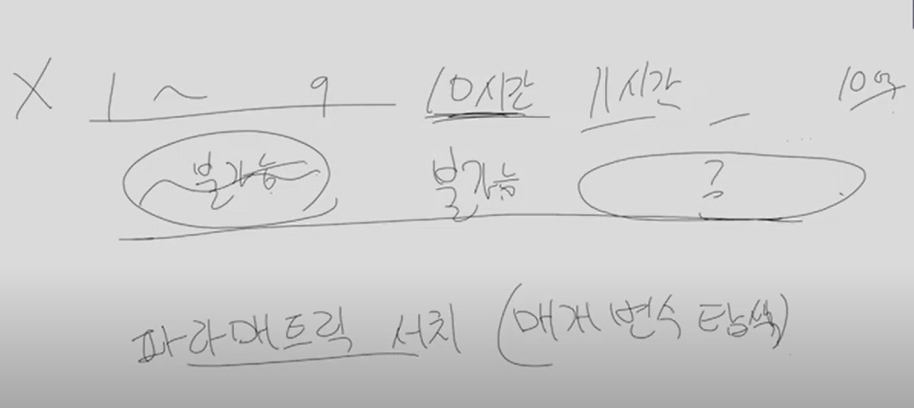 X 1 ~ 9 10시간 11시간 ~ 10억
불가능 불가능 ?
파라매트릭 서치 (매개변수 탐색)